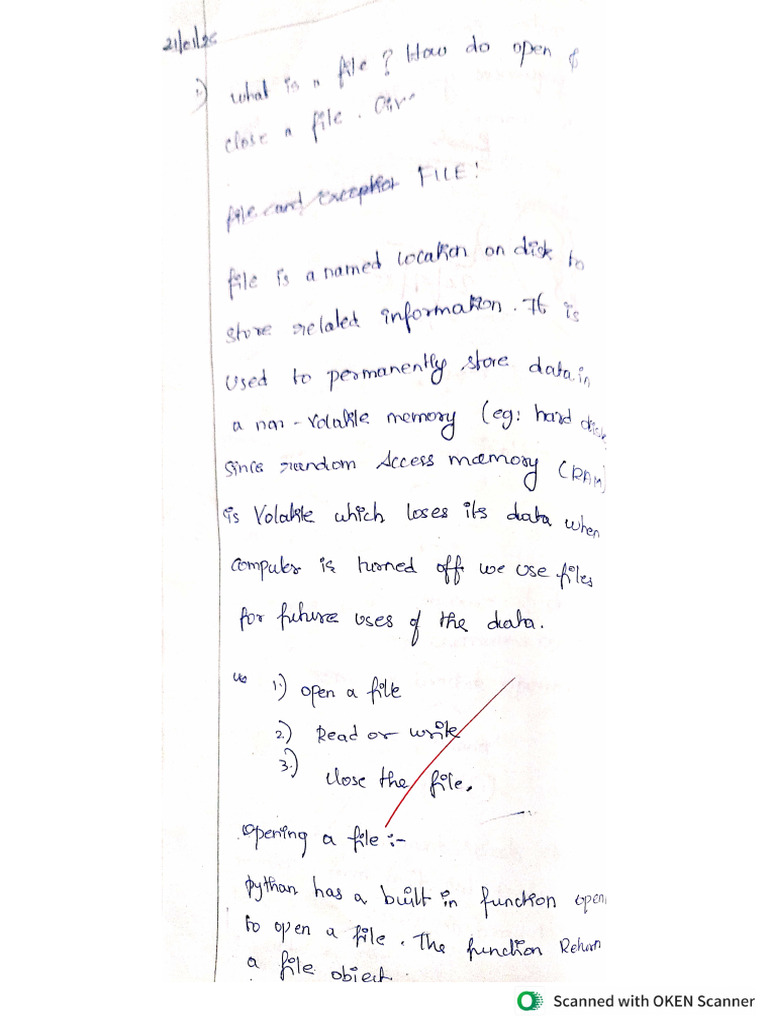 21/01/25
1.) what is a file? How do open &
close a file.
file and exception FILE!
file is a named location on disk to
store related information. It is
used to permanently store data in
a non-volatile memory (eg: hard disk
Since random Access memory (RAM)
is Volatile which loses its data when
computer is turned off we use files
for future uses of the data.
1.) open a file
2.) Read or write
3.) close the file.
opening a file :-
python has a built in function open
to open a file. The function Return
a file object
Scanned with OKEN Scanner